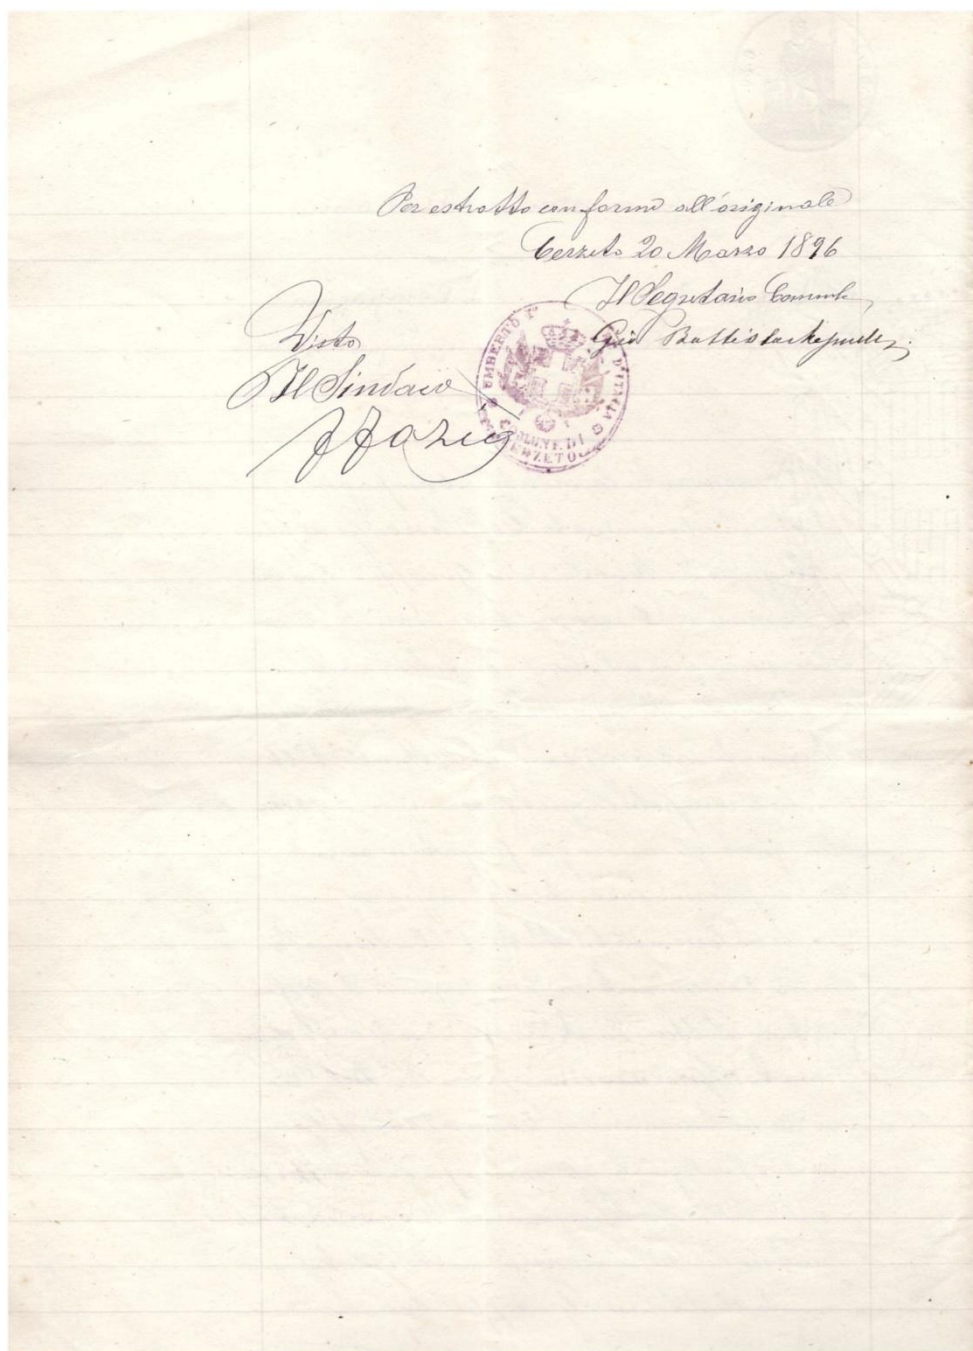 Per estratto conforme all'originale
Cerzeto 20 Marzo 1896
Il Segretario Comunle
Gio Battista
Visto
Il Sindaco
UMBERTO I° D'ITALIA
COMUNE DI
CERZETO